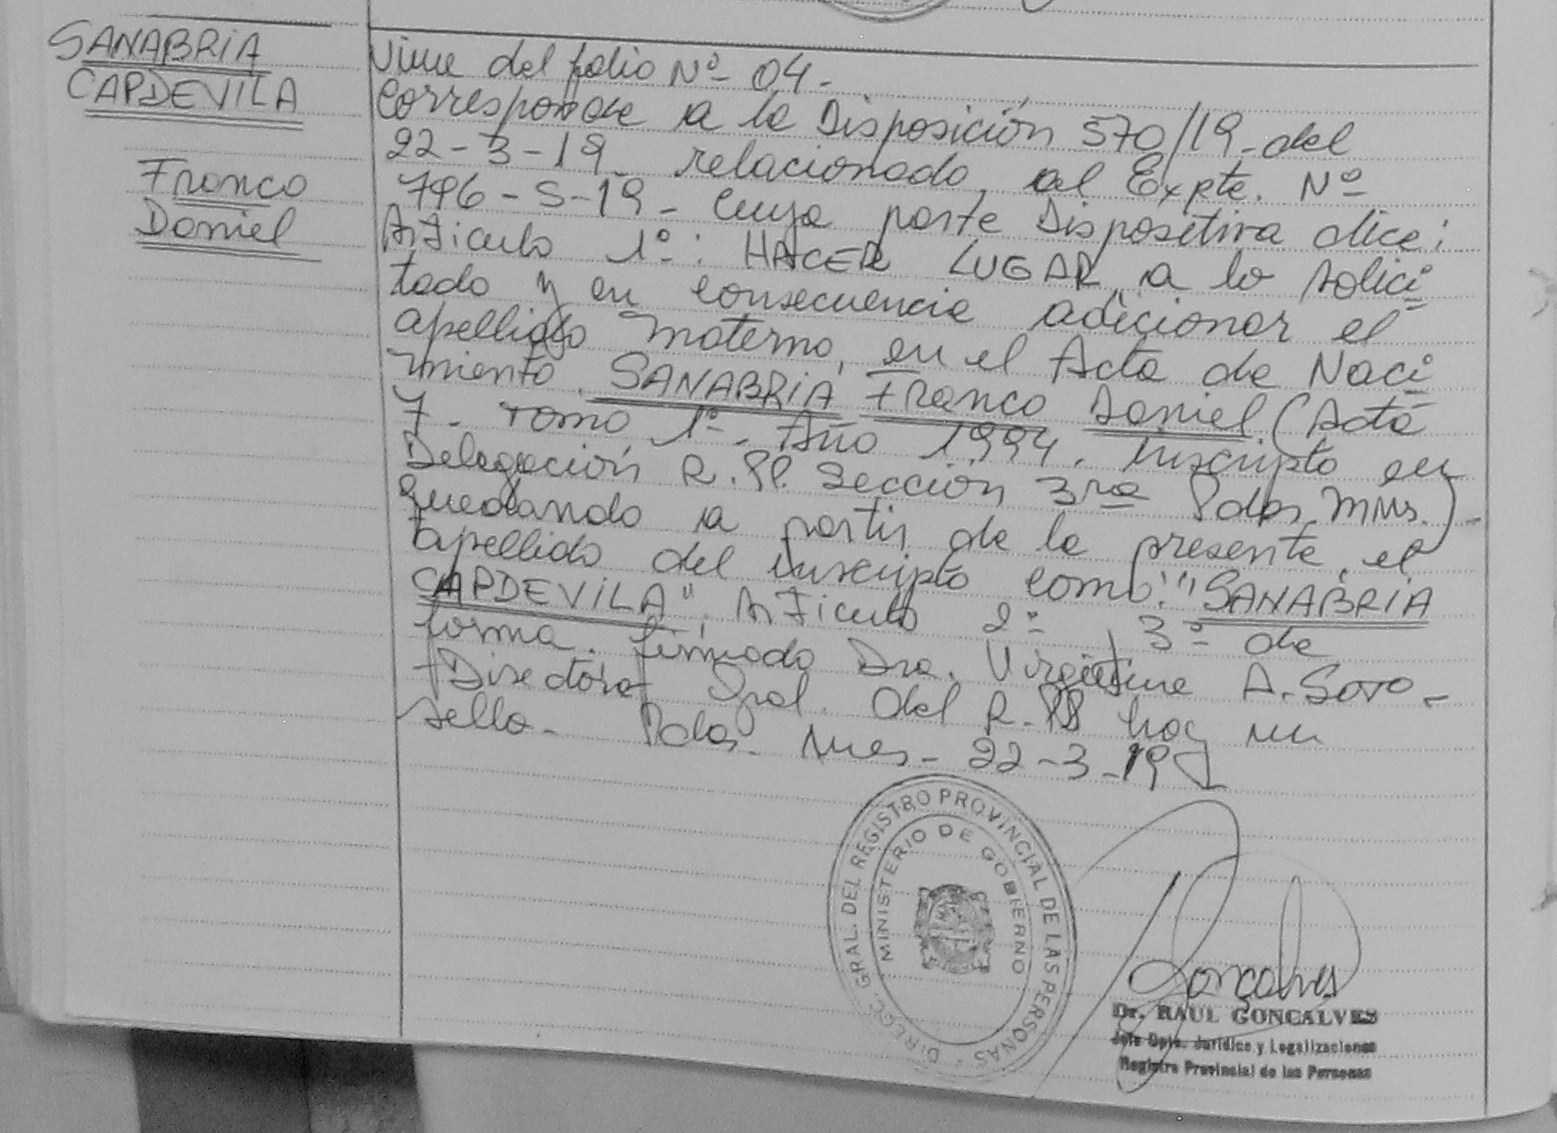 SANABRIA
CAPDEVILA
Franco
Daniel
Viene del folio Nº 04.
Corresponde a la Disposición 570/19 del
22-3-19 relacionado, al Expte. Nº
796-S-19- Cuya parte Dispositiva dice:
Artículo 1º: HACER LUGAR a lo solici
tado y en consecuencia adicionar el
apellido Materno, en el Acta de Naci
miento. SANABRIA Franco Daniel (Acta
7- Tomo 1º- Año 1994. Inscripto en
Delegación R.PP. Sección 3ra Pdas. Mnes.)-
Quedando a partir de la presente, el
apellido del inscripto como: "SANABRIA
CAPDEVILA". Artículo 2º, 3º de
forma. firmado Dra. A. Soto-
Directora Gral. del R.PP hay un
sello- Pdas- Mnes- 22-3-19
DIRECC. GRAL. DEL REGISTRO PROVINCIAL DE LAS PERSONAS
MINISTERIO DE GOBIERNO
Goncalves
Dr. RAUL GONCALVES
Jefe Dpto. Jurídico y Legalizaciones
Registro Provincial de las Personas